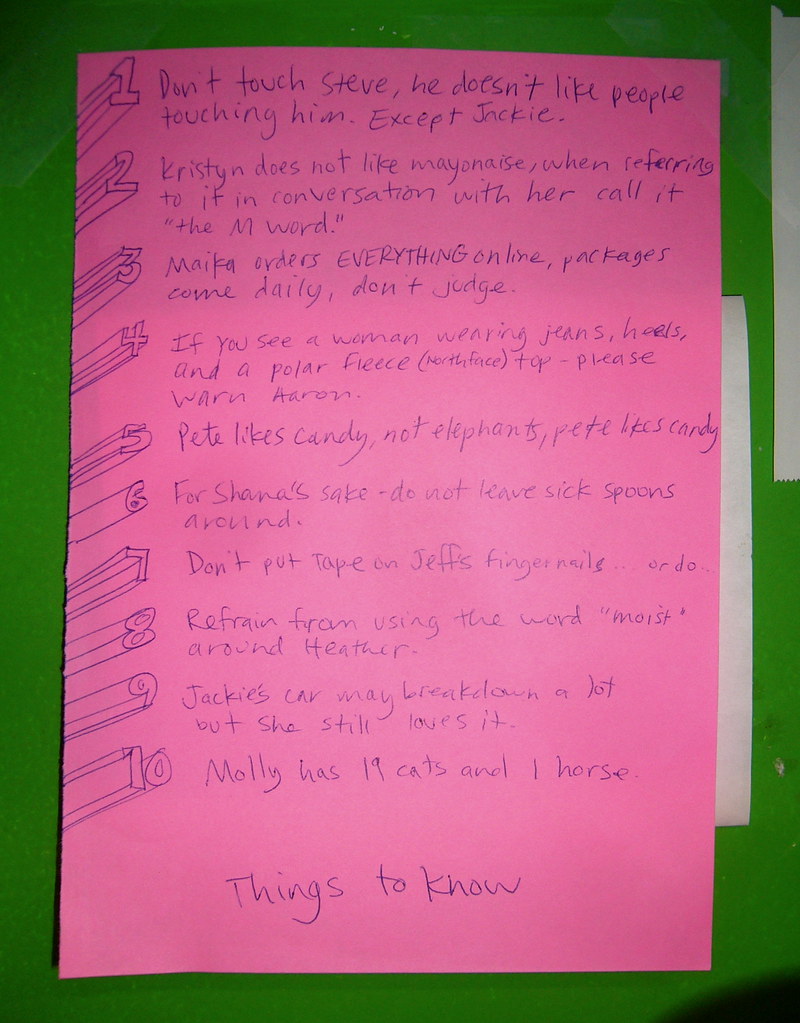 1 Don't touch Steve, he doesn't like people
touching him. Except Jackie.
2 Kristyn does not like mayonaise, when referring
to it in conversation with her call it
"the M word."
3 Maika orders EVERYTHING online, packages
come daily, don't judge.
4 If you see a woman wearing jeans, heels,
and a polar fleece (Northface) top - please
warn Aaron.
5 Pete likes candy, not elephants, pete likes candy
6 For Shana's sake - do not leave sick spoons
around.
7 Don't put Tape on Jeff's fingernails... or do...
8 Refrain from using the word "moist"
around Heather.
9 Jackie's car may breakdown a lot
but she still loves it.
10 Molly has 19 cats and 1 horse.
Things to know